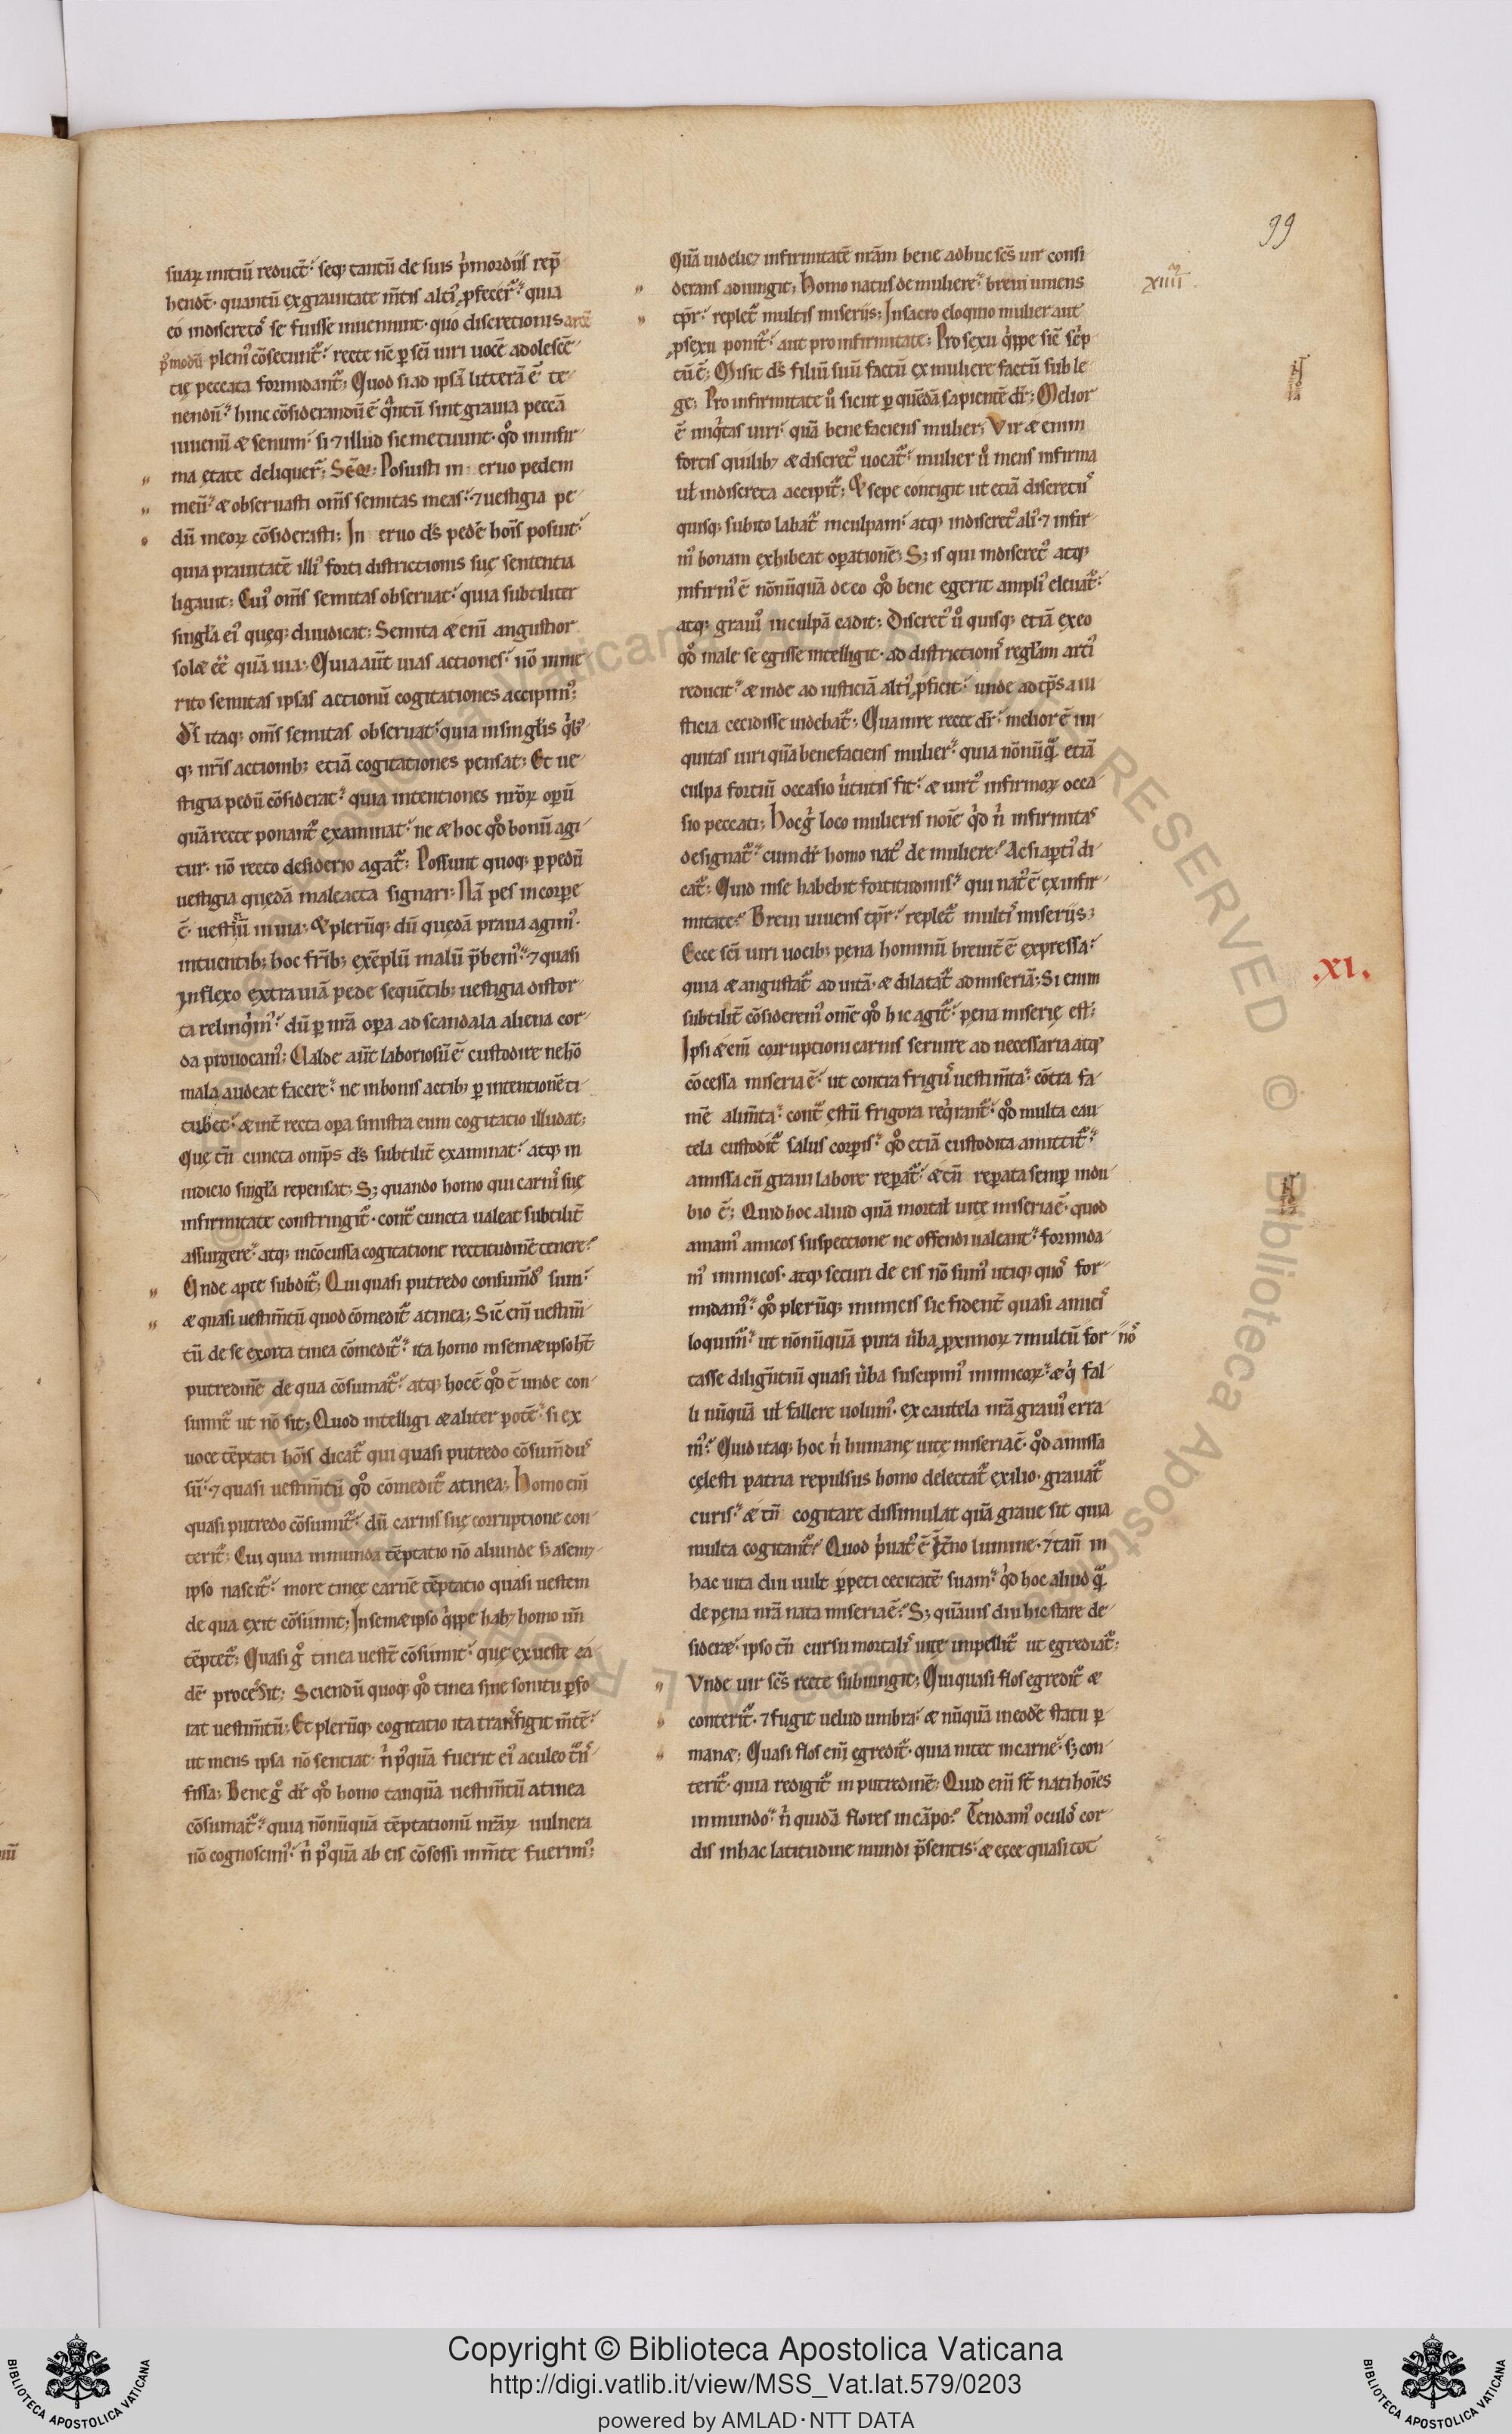 99
suaꝝ initiū reducēt. seq; tantū de suis p̓mordiis rep̄
hendēt. quantū ex grauitate m̄tis alti᷒ ꝓfecer̄t. quia
eo indiscreto᷒ se fuisse inueniunt. quo discretionis arcē
p᷒modū pleni᷒ cōsecunt᷑. recte nc̄ ꝑ sc̄i uiri uocē adolescē
tię peccata formidant᷑; Quod si ad ipsā litterā ē te
nendū. hinc cōsiderandū ē q̓ntū sint grauia peccā
iuuenū & senum. si ⁊ illud sic metuunt. qd̓ in infir
ma ętate deliquer̄; Seq̄r; Posuisti in eruo pedem
meū. & obseruasti om̄s semitas meas. ⁊ uestigia pe
dū meoꝝ cōsiderasti; In eruo dš pedē hoīs posuit.
quia prauitatē illi᷒ forti districtionis suę sententia
ligauit; Cui᷒ om̄s semitas obseruat. quia subtiliter
singła ei᷒ quęq; diiudicat; Semita & eni᷒ angustior
sol& eē̄ quā uia; Quia aūt uias actiones. nō inme
rito semitas ipsas actionū cogitationes accipim᷒;
Dš itaq; om̄s semitas obseruat. quia in singłis q̓b᷒
q; nr̄is actionib; etiā cogitationes pensat; Et ue
stigia pedū cōsiderat. quia intentiones nr̄oꝝ operū
quā recte ponant᷑ examinat. ne & hoc qd̓ bonū agi
tur. nō recto desiderio agat᷑; Possunt quoq; ꝑ pedū
uestigia quędā male acta signari; Nā pes in corpe
ē. uestigiū in uia; & plerūq; dū quędā praua agim᷒.
intuentib; hoc fr̄ib; exēplū malū p̄bem᷒. ⁊ quasi
inflexo extra uiā pede sequētib; uestigia distor
ta relinq̓m᷒. dū ꝑ nr̄a opa ad scandala aliena cor
da prouocam᷒; Ualde aūt laboriosū ē custodire ne hō
mala audeat facere. ne in bonis actib; ꝑ intentionē ti
tubet. & int̄ recta opa sinistra eum cogitatio illudat;
Que tn̄ cuncta omp̄s dš subtilit̄ examinat. atq; in
iudicio singła repensat; S; quando homo qui carni᷒ suę
infirmitate constringit᷑. cont᷑ cuncta ualeat subtilit̄
assurgere. atq; incōcussa cogitatione rectitudinē tenere?
Unde apte subdit᷑; Qui quasi putredo consumd᷒ sum.
& quasi uestim̄tū quod cōmedit᷑ a tinea; Sic̄ eni᷒ uestim̄
tū de se exorta tinea cōmedit᷑. ita homo in semetipso h̄t
putredinē de qua cōsumat᷑. atq; hoc ē qd̓ ē unde con
sumit᷑ ut nō sit; Quod intelligi & aliter potē. si ex
uoce tēptati hoīs dicat᷑ qui quasi putredo cōsumdus
sū. ⁊ quasi uestim̄tū qd̓ cōmedit᷑ a tinea; Homo eni᷒
quasi putredo cōsumit᷑. dū carnis suę corruptione con
terit᷑; Cui quia inmunda tēptatio nō aliunde s; a sem&
ipso nascit᷑. more tineę carnē tēptatio quasi uestem
de qua exit cōsumit; In sem&ipso q̓ppe hab; homo un̄
tēptet᷑; Quasi g᷒ tinea uestē cōsumit. que ex ueste ea
dē processit; Sciendū quoq; qd̓ tinea sine sonitu ꝑfo
rat uestim̄tū; Et plerūq; cogitatio ita transfigit m̄tē.
ut mens ipsa nō sentiat. n̓ p᷒quā fuerit ei᷒ aculeo
fissa; Bene g᷒ dr̄ qd̓ homo tanquā uestim̄tū a tinea
cōsumat᷑. quia nōnūquā tēptationū nr̄aꝝ uulnera
nō cognoscim᷒. n̓ p᷒quā ab eis cōfossi in m̄te fuerim᷒;
Quā uidelic; infirmitatē nr̄am bene adhuc sc̄s uir consi
derans adiungit; Homo natus de muliere. breui uiuens
tp̄r. replet᷑ multis miseriis; In sacro eloquio mulier aut
ꝓ sexu ponit᷑. aut pro infirmitate; Pro sexu q̓ppe sic̄ sc̓p
tū ē; Misit dš filiū suū factū ex muliere factū sub le
ge; Pro infirmitate u᷒ sicut ꝑ quēdā sapientē dr̄; Melior
ē iniq̓tas uiri. quā bene faciens mulier; Vir & enim
fortis quilib; & discret᷒ uocat᷑. mulier u᷒ mens infirma
uł indiscreta accipit᷑; & sepe contigit ut etiā discretus
quisq; subito labat᷑ in culpam. atq; indiscret᷒ ali᷒ ⁊ infir
m᷒ bonam exhibeat operationē; S; is qui indiscret᷒ atq;
infirm᷒ ē nōnūquā de eo qd̓ bene egerit ampli᷒ eleuat᷑.
atq; graui᷒ in culpā cadit; Discret᷒ u᷒ quisq; etiā ex eo
qd̓ male se egisse intelligit. ad districtionis regłam arti᷒
reducit. & inde ad iusticiā alti᷒ ꝓficit. unde ad tp̄s a iu
sticia cecidisse uidebat᷑; Qua in re recte dr̄. melior ē ini
quitas uiri quā benefaciens mulier. quia nōnūq̄ etiā
culpa fortiū occasio u᷒tutis fit. & uirt᷒ infirmoꝝ occa
sio peccati; Hoc g᷒ loco mulieris noīe q̓d n̓ infirmitas
designat᷑. cum dr̄ homo nat᷒ de muliere? Ac si apti᷒ di
cat᷑; Quid in se habebit fortitudinis. qui nat᷒ ē ex infir
mitate? Breui uiuens tp̄r. replet᷑ multis miseriis;
Ecce sc̄i uiri uocib; pena hominū breuit̄ ē expressa.
quia & angustat᷑ ad uitā. & dilatat᷑ ad miseriā; Si enim
subtilit̄ cōsiderem᷒ om̄e qd̓ hic agit᷑. pena miserię est;
Ipsi & eni᷒ corruptioni carnis seruire ad necessaria atq;
cōcessa miseria ē. ut contra frigus uestim̄ta. cōtra fa
mē alim̄ta. cont᷑ ęstū frigora req̓rant᷑. qd̓ multa cau
tela custodit᷑ salus corpis. qd̓ etiā custodita amittit᷑.
amissa cū graui labore repat᷑. & tn̄ repata semp in du
bio ē; Quid hoc aliud quā mortał uitę miseria ē. quod
amam᷒ amicos suspectione ne offendi ualeant. formida
m᷒ inimicos. atq; securi de eis nō sum᷒ utiq; quos for
midam᷒. qd̓ plerūq; inimicis sic fident̄ quasi amicis
loquim᷒. ut nōnūquā pura u᷒ba ꝓximoꝝ ⁊ multū for nos
tasse diligentiū quasi u᷒ba suscipim᷒ inimicoꝝ. & q̓ fal
li nūquā uł fallere uolum᷒. ex cautela nr̄a graui᷒ erra
m᷒? Quid itaq; hoc n̓ humanę uitę miseria ē. qd̓ amissa
cęlesti patria repulsus homo delectat᷑ exilio. grauat᷑
curis. & tn̄ cogitare dissimulat quā graue sit quia
multa cogitant᷑? Quod p̓uat᷒ ē int̄no lumine. ⁊ tam̄ in
hac uita diu uult ꝑpeti cecitatē suam. q̓d hoc aliud q̄
de pęna nr̄a nata miseria ē? S; quāuis diu hic stare de
sider&. ipso tn̄ cursu mortalis uitę impellit᷑ ut egrediat᷑;
Vnde uir sc̄s recte subiungit; Qui quasi flos egredit᷑ &
conterit᷑. ⁊ fugit uelud umbra. & nūquā in eodē statu ꝑ
man&; Quasi flos eni᷒ egredit᷑. quia nitet in carne. s; con
terit᷑. quia redigit᷑ in putredinē; Quid eni᷒ st̄ nati hoīes
in mundo. n̓ quidā flores in cāpo? Tendam᷒ oculos cor
dis in hac latitudine mundi p̄sentis. & ecce quasi tot
xiiii
.XI.
Copyright © Biblioteca Apostolica Vaticana
http://digi.vatlib.it/view/MSS_Vat.lat.579/0203
powered by AMLAD·NTT DATA
BIBLIOTECA APOSTOLICA VATICANA
BIBLIOTECA APOSTOLICA VATICANA